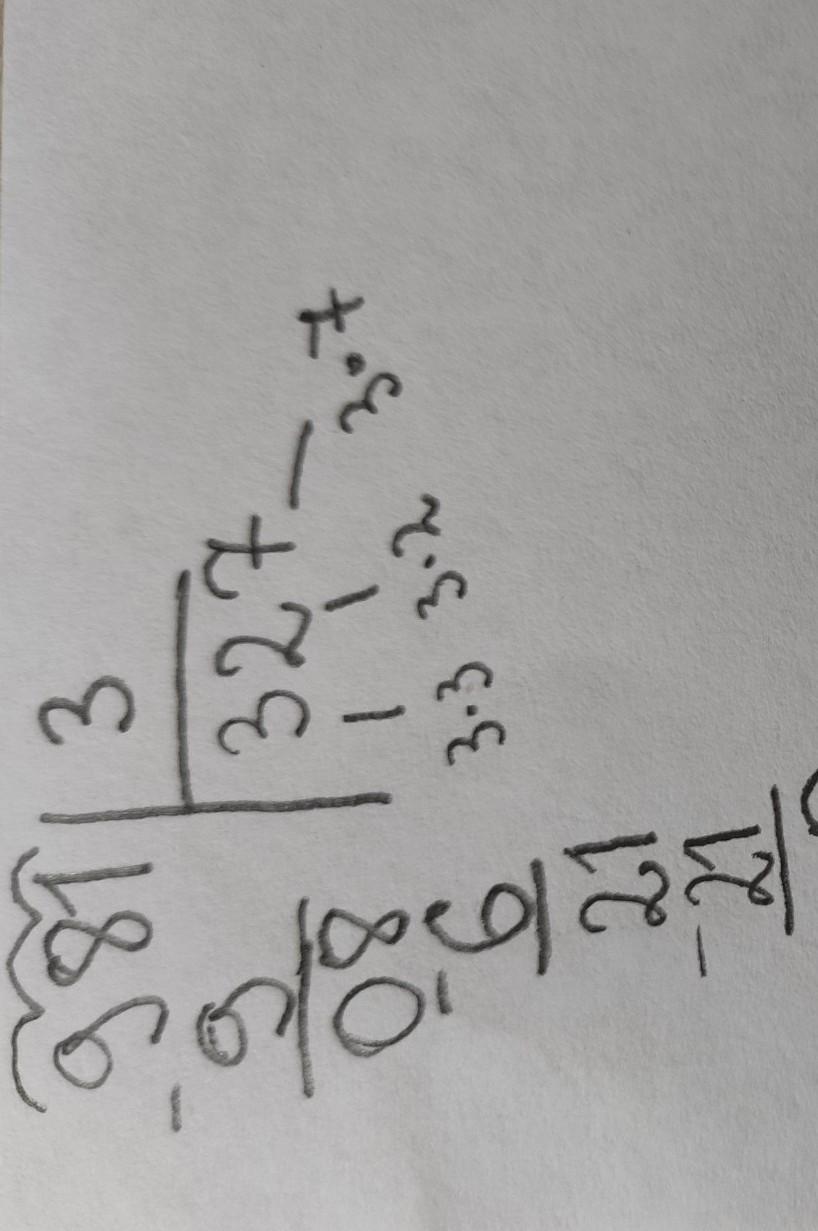 981 3
-9 327
08 3·7
-6 3·3 3·2
21
-21